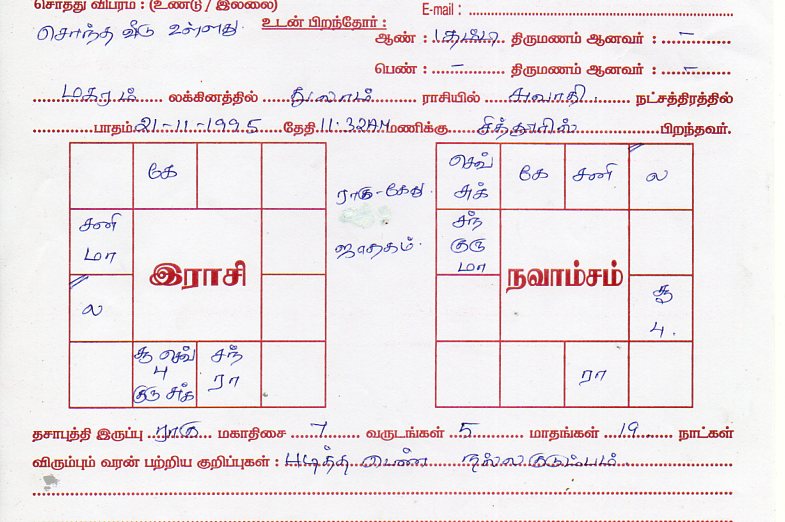 சொத்து விபரம் : (உண்டு / இல்லை)
E-mail :
சொந்த வீடு உள்ளது.
உடன் பிறந்தோர் :
ஆண் : தம்பி திருமணம் ஆனவர் : –
பெண் : – திருமணம் ஆனவர் : –
மகரம் லக்கினத்தில் துலாம் ராசியில் சுவாதி நட்சத்திரத்தில்
பாதம் 21-11-1995 தேதி 11:32AM மணிக்கு சித்தூரில் பிறந்தவர்.
கே
சனி
மா
இராசி
ல
சூ செவ்
பு
குரு சுக்
சந்
ரா
ராகு-கேது
ஜாதகம்.
செவ்
சுக்
கே
சனி
ல
சந்
குரு
மா
நவாம்சம்
சூ
பு.
ரா
தசாபுத்தி இருப்பு ராகு மகாதிசை 7 வருடங்கள் 5 மாதங்கள் 19 நாட்கள்
விரும்பும் வரன் பற்றிய குறிப்புகள் : படித்த பெண் நல்ல குடும்பம்.